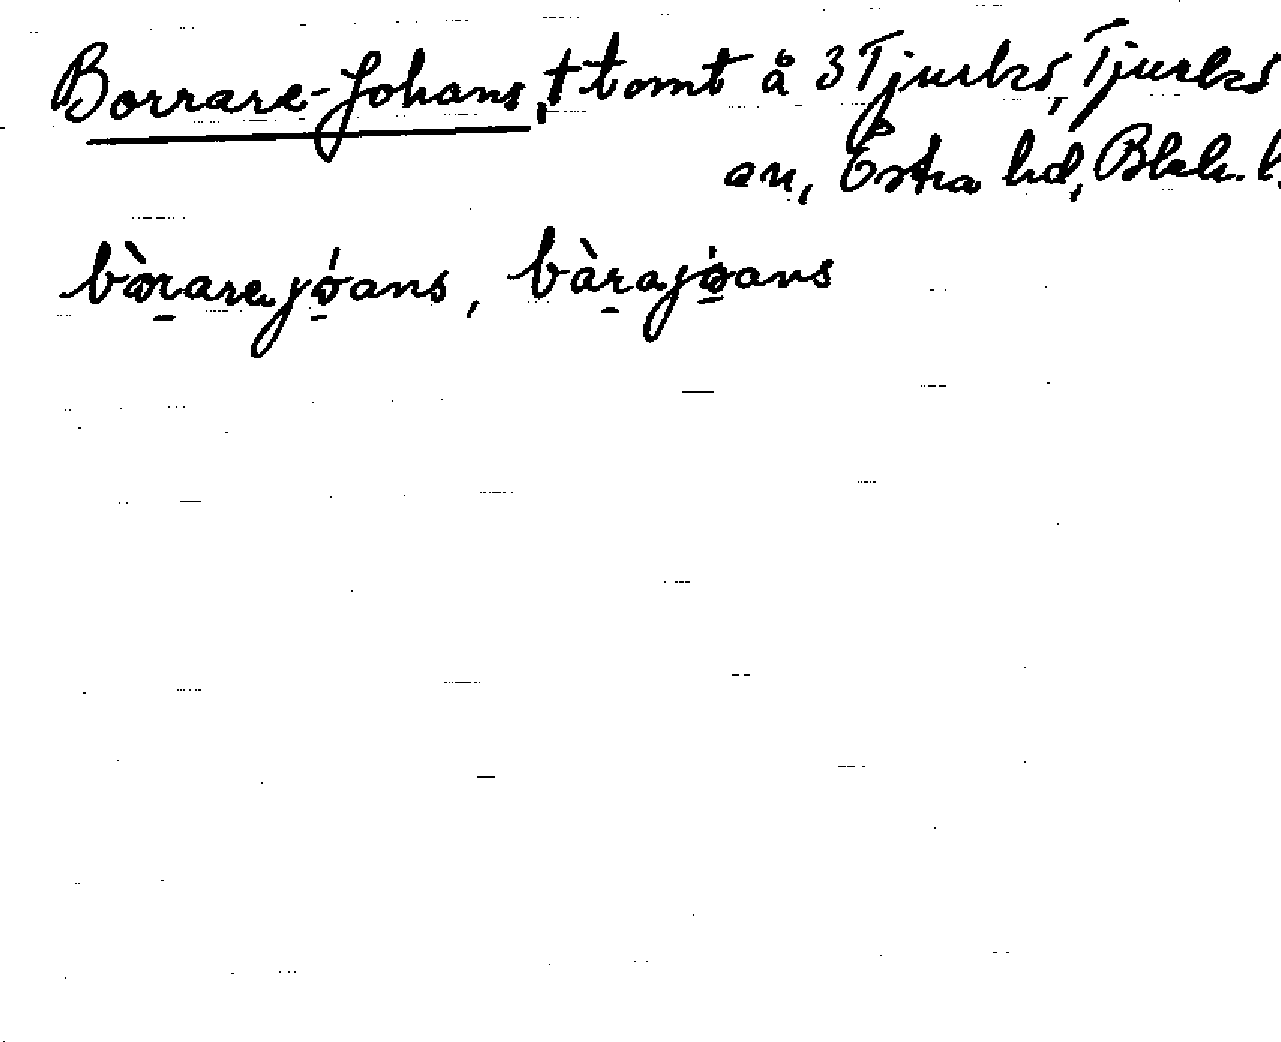 Borrare-Johans, † tomt å 3 Tjurks, Tjurks
an, Östra hd, Blek. l.
bòrarejóans, bàrajóans